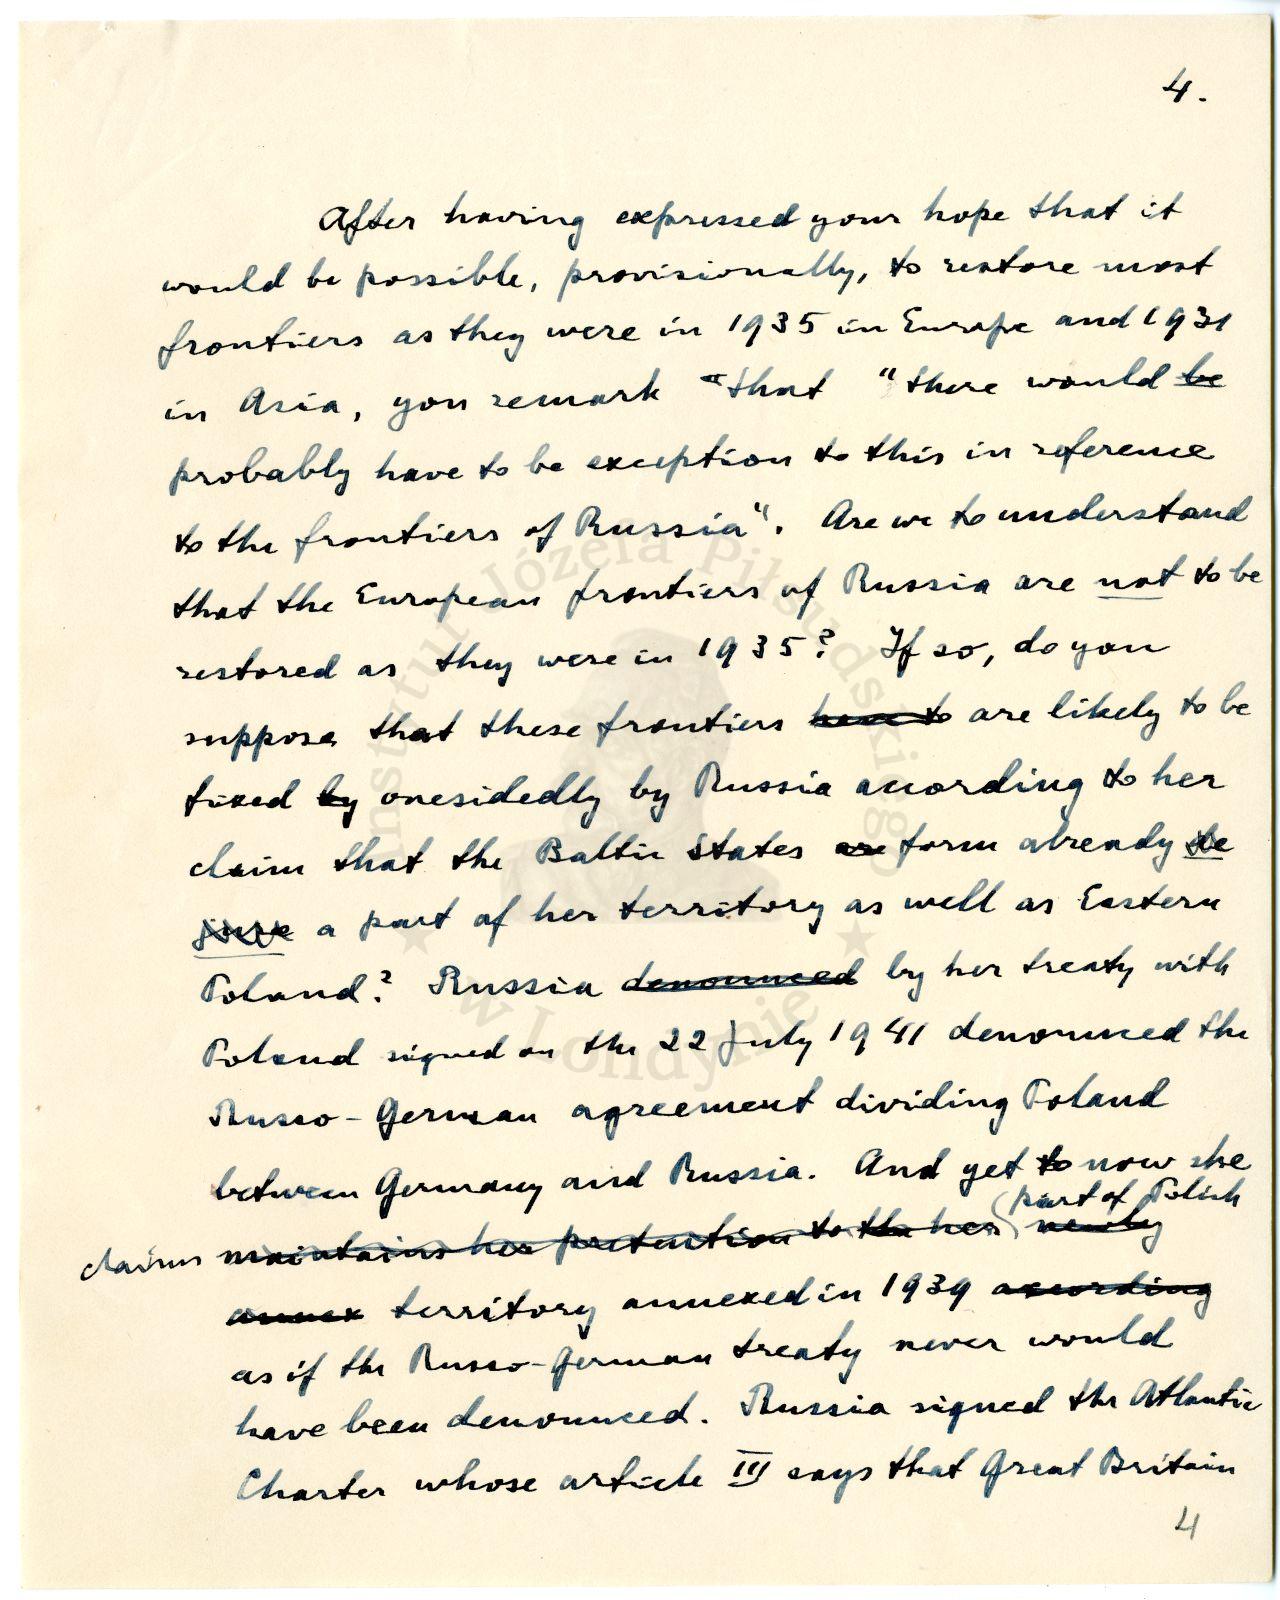 4.
After having expressed your hope that it
would be possible, provisionally, to restore most
frontiers as they were in 1935 in Europe and 1931
in Asia, you remark "that "there would be
probably have to be exception to this in reference
to the frontiers of Russia". Are we to understand
that the European frontiers of Russia are not to be
restored as they were in 1935? If so, do you
suppose that these frontiers have to are likely to be
fixed by onesidedly by Russia according to her
claim that the Baltic States are form already de
jure a part of her territory as well as Eastern
Poland? Russia denounced by her treaty with
Poland signed on the 22 July 1941 denounced the
Russo-German agreement dividing Poland
between Germany and Russia. And yet to now she
part of Polish
claims maintains her pretention to the her newly
annex territory annexed in 1939 according
as if the Russo-German treaty never would
have been denounced. Russia signed the Atlantic
Charter whose article III says that Great Britain
4
Instytut Józefa Piłsudskiego
w Londynie